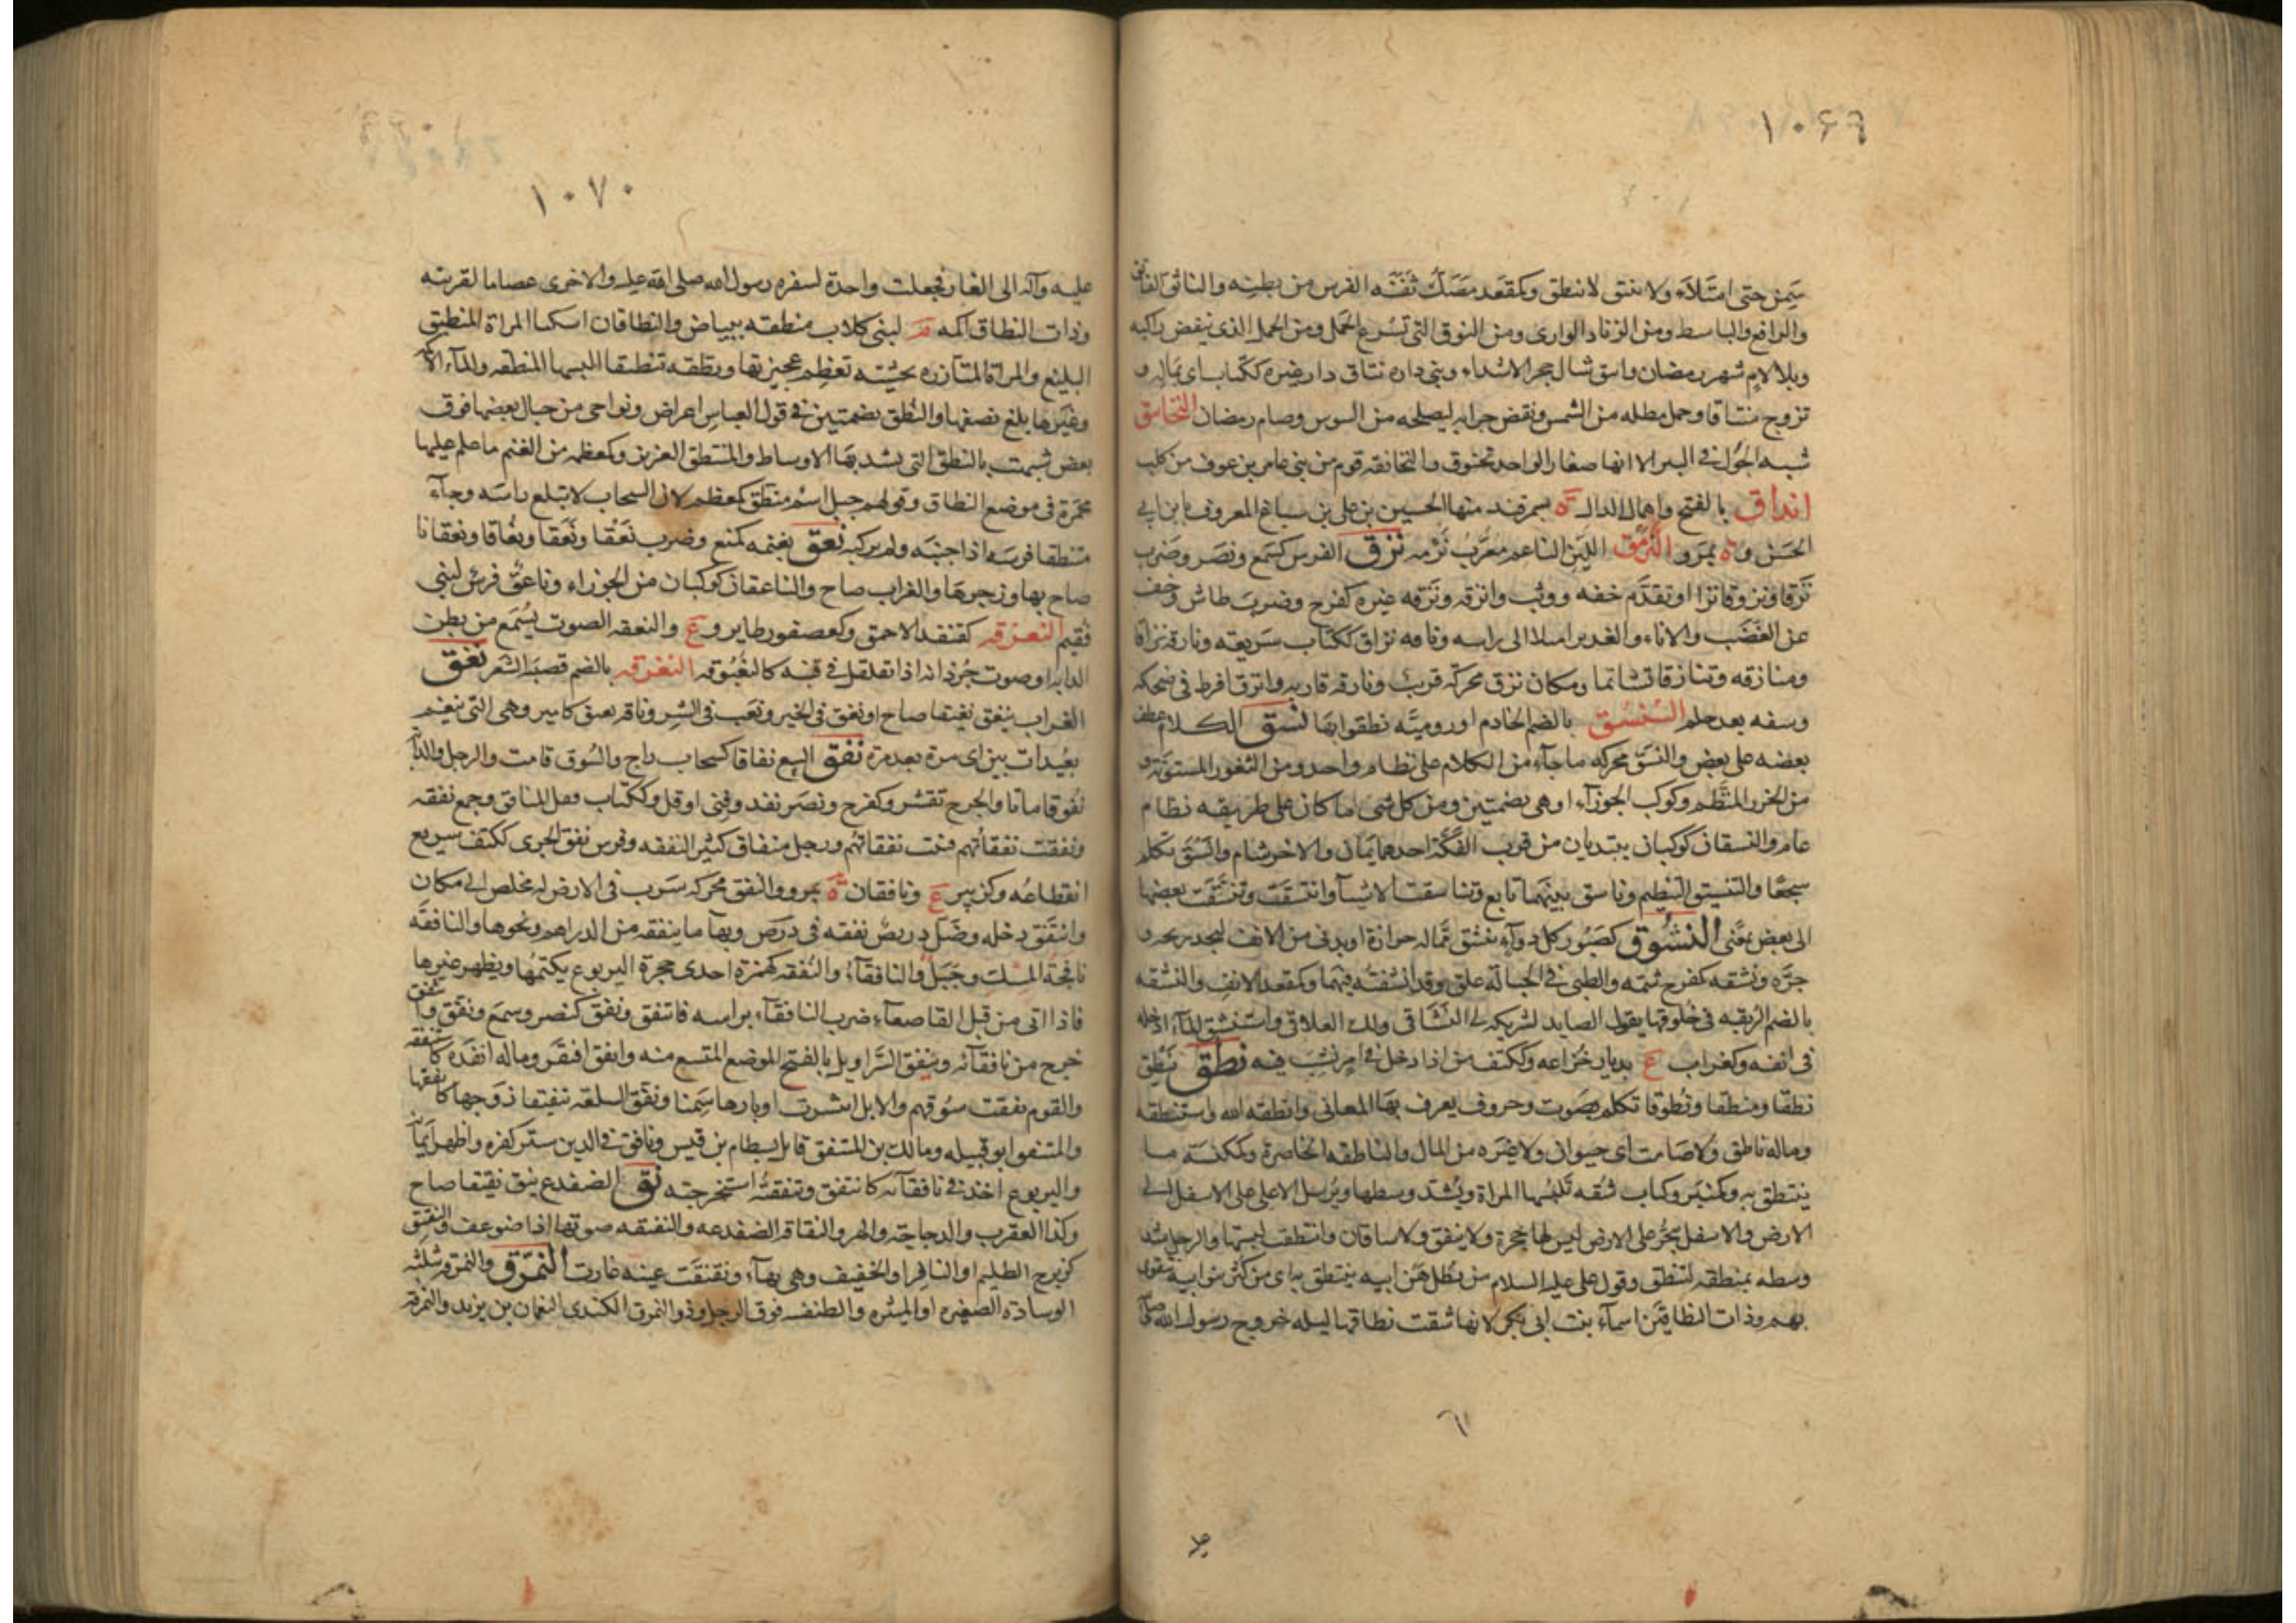 ١٠۶٩
سَمِنَ حتى امتَلأَ ولا ينتق لا ينطق وكمقعد مصَكُّ ثَفِنَة الفرس من بطنه والناتق الفاتق
والرافع والباسط ومن الزناد الوارى ومن النوق التى تسرع الحمل ومن الخيل الذى ينفض راكبه
وبلا لام شهر رمضان وانتق شال حجر الاشداء وبنى داره نتاق دار غيره ككتاب اى بحياله و
تزوج منتاقا وحمل مظله من الشمس ونفض جرابه ليصلحه من السوس وصام رمضان النخانق
شبه الجُوَل فى البير الا انها صغار الواحد نخنوق والنخانقه قوم من بنى عامر بن عوف من كلب
انداق بالفتح واهمال الدال ة بسمرقند منها الحسين بن على بن سباغ المعروف بابن ابى
الحسن وة بمرو النرمق الليّن الناعم معرّب نَرْمه نزق الفرس كسمع ونصر وضرب
نَزَقا ونزوقا نزا او تقدّم خفه ووثب وانزقه ونَزّقه غيره كفرح وضرب طاش وخف
عن الغضب والاناء والغدير امتلا الى راسه وناقه نزاق ككتاب سَريعته ونازقه نزاقا
ومنازقه وتنازقا تشاتما ومكان نزق محركة قريب ونازقه قاربه وانزق افرط فى ضحكه
وسفه بعد حلم النُستُق بالضم الخادم او روميّه نطقوا بها نسق الكلام عطف
بعضه على بعض والنسق محركه ما جآء من الكلام على نظام واحد ومن الثغور المستويّة و
من الخرز المنظم وكوكب الجوزآء او هى بضمتين ومن كل شى ما كان على طريقه نظام
عام والنسقان كوكبان يبتديان من قرب الفكّة احدهما يمان والاخر شام وانسق تكلم
سجعًا والتنسيق التنظيم وناسق بينهما تابع وتناسقت الاشيآ وانتسقت وتنسقت بعضها
الى بعض بمعنى النشوق كصبور كل دوآء ينشق مما له حرارة او يدنى من الانف ليجد ريحه و
حرّه ونشقه كفرح شمه والظبى فى الحبالة علق وقد انشقته فيهما وكمقعد الانف والنشقه
بالضم الربقه فى حلوقها يقول الصايد لشريكه لى النشاقى ولك العلاقى واستنشق المآء ادخله
فى انفه وكغراب ع بديار خزاعه وككتف من اذا دخل فى امر نشب فيه نطق ينطق
نطقا ومنطقا ونطوقا تكلم بصوت وحروف يعرف بها المعانى وانطقه الله واستنطقه
وماله ناطق ولا صامت اى حيوان ولا غيره من المال والناطقه الخاصرة وكمكنسة ما
ينتطق به وكمنبر وكتاب شقه تلبسها المراة وتشد وسطها وترسل الاعلى على الاسفل الى
الارض والاسفل ينجرّ على الارض ليس لها حجزة ولا نيفق ولا ساقان وانتطقت لبستها والرجل شد
وسطه بمنطقه كتنطق وقول على عليه السلام من يطل هَن ابيه ينتطق به اى من كثر بنو ابيه يتقوى
بهم وذات النطاقين اسمآء بنت ابى بكر لانها شقت نطاقها ليله خروج رسول الله صلى الله
١٠٧٠
عليه وآله الى الغار فجعلت واحدة لسفره رسول الله صلى الله عليه والاخرى عصاما لقربته
وذات النطاق اكمه م لبنى كلاب منطقه ببياض والنطاقان اسكتا المراة المنطيق
البليغ والمراة المتآزره بحشيّه تعظم عجيزتها ونطقه تنطيقا البسها المنطقه والمآء الاكمه
وغيرها بلغ نصفها والنطق بضمتين فى قول العباس اعراض ونواحى من جبال بعضها فوق
بعض شبهت بالنطق التى يشد بها الاوساط والمنتطق العزيز وكمعظمه من الغنم ما علم عليها
بحمرة فى موضع النطاق وقولهم جبل اشم منطق كمعظم لان السحاب لا يبلغ راسه وجآء
منتطقا فرسه اذا جنبه ولم يركبه نعق بغنمه كمنع وضرب نَعْقا ونَعيقا ونُعاقا ونعقانا
صاح بها وزجرها والغراب صاح والناعقان كوكبان من الجوزاء وناعق فرس لبنى
فُقيم النعزقه كقنفذ الاحمق وكعصفور طاير وع والنعقه الصوت يُسمَع من بطن
الدابه او صوت جُرذانه اذا تقلقل فى قنبه كالنغبوقه النغرقه بالضم قصبة الشعر نغق
الغراب ينغق نغيقا صاح او نغق فى الخير ونعب فى الشر وناقه نغيق كامير وهى التى تبغم
بعيدات بين اى مرة بعد مرة نفق البيع نفاقا كسحاب راج والسُوق قامت والرجل والدآبه
نفوقا ماتا والجرح تقشر وكفرح ونصر نفد وفنى او قل وككتاب فعل المنافق وجمع نفقه
ونفقت نفقاتهم فنت نفقاتهم ورجل منفاق كثير النفقه وفرس نفق الجرى ككتف سريع
انقطاعه وكزبير ع ونافقان ة بمرو والنفق محركه سَرَب فى الارض له مخلص الى مكان
وانتفق دخله وضَلّ دريص نفقه فى درص وبهآ ما ينفقه من الدراهم ونحوها والنافقه
نافجةُ المسك وجبل والنافقآء والنُفقه كهمزة احدى جحرة اليربوع يكتمها ويظهر غيرها
فاذا اتى من قبل القاصعآء ضرب النافقآء براسه فانتفق ونفق كنصر وسمع ونفق وانتفق
خرج من نافقآئه ونيفق السَّراويل بالفتح الموضع المتسع منه وانفق افتقر وماله انفده كاستنفقه
والقوم نفقت سُوقهم والابل انتشرت اوبارها سِمَنا ونفق السلعه تنفيقا روّجها كانفقها
والمتنفق ابو قبيله ومالك بن المنتفق قاتل بسطام بن قيس ونافق فى الدين ستر كفره واظهر ايمانه
واليربوع اخذ فى نافقآئه كانتفق وتنفقتُه استخرجته نق الضفدع ينق نقيقا صاح
وكذا العقرب والدجاجة والهر والنقاقه الضفدعه والنقنقه صوتها اذا ضوعف والنقنق
كزبرج الظليم او النافر او الخفيف وهى بهآء ونقنقت عينه غارت النمرق والنمرقه مثلثه
الوسادة الصغيره او الميثره والطنفسه فوق الرحل وذو النمرق الكندى النعمان بن يزيد والنمرقه